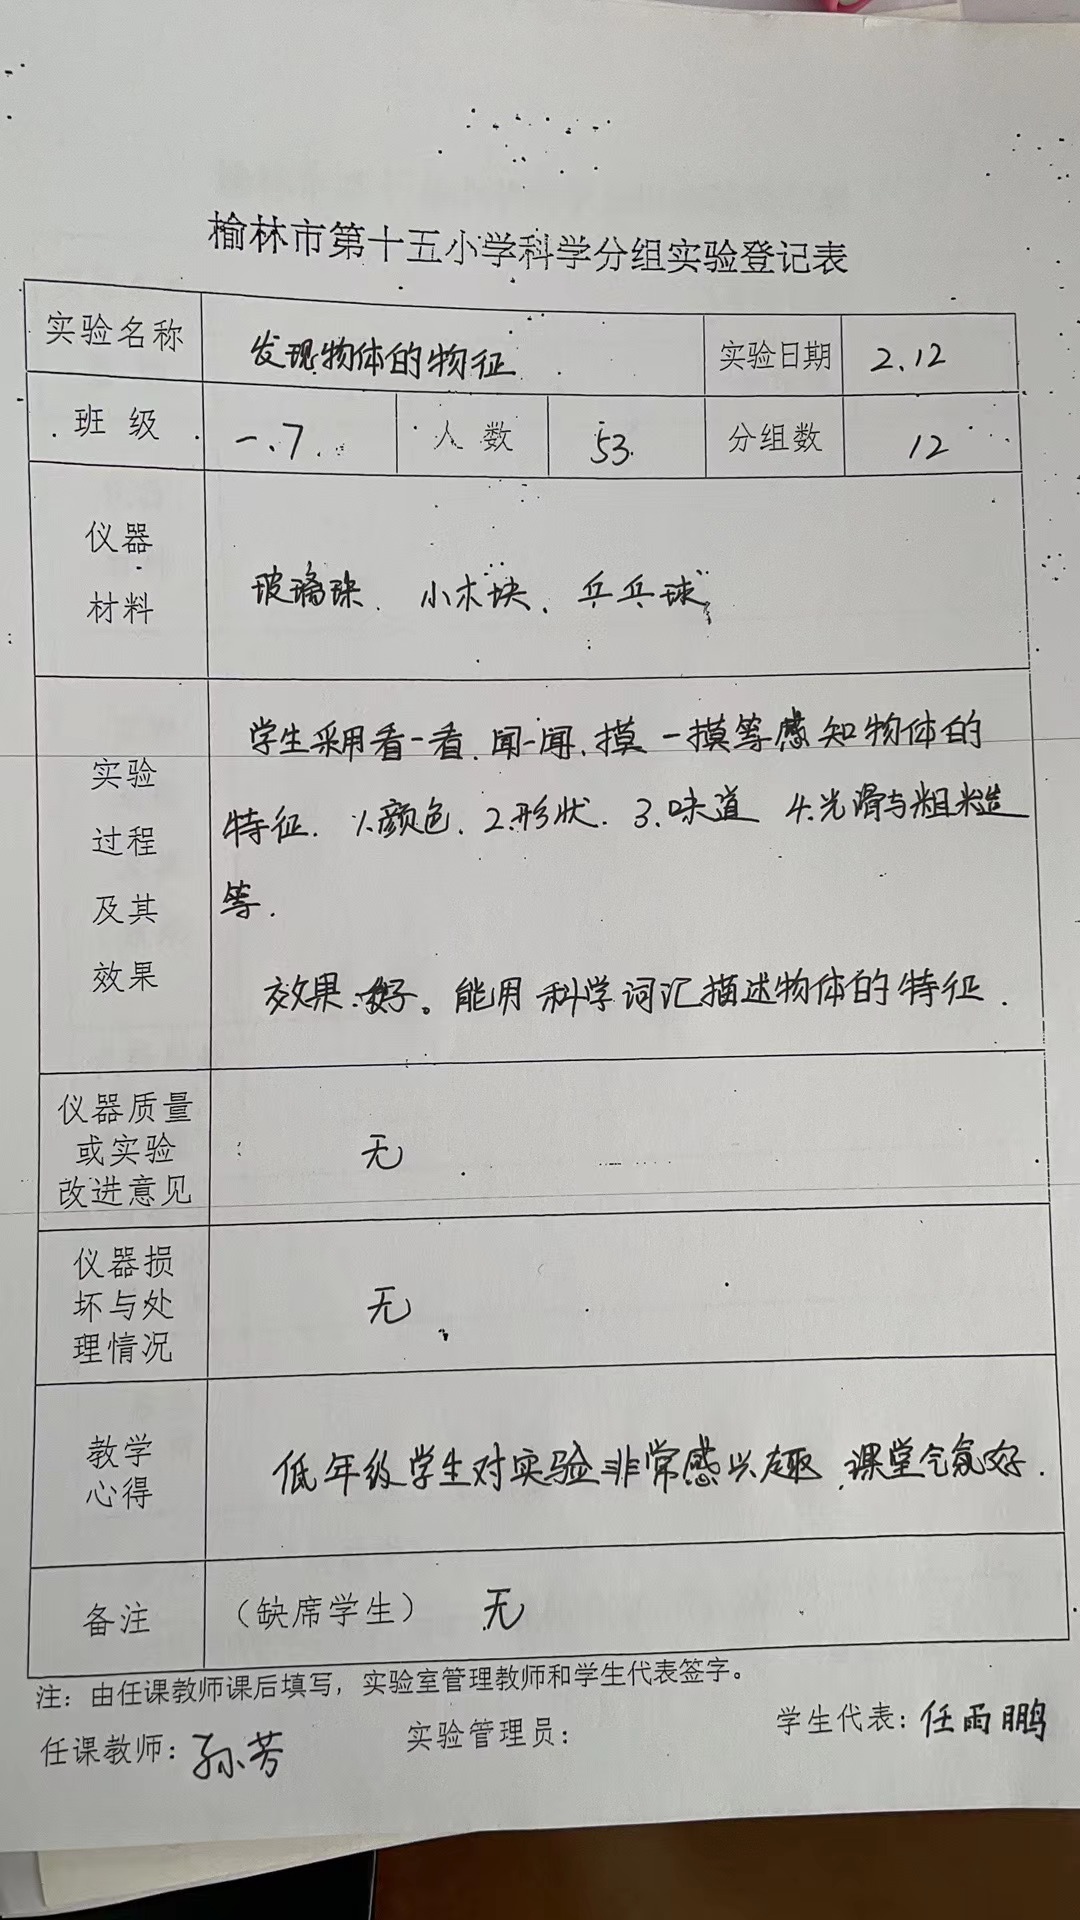 榆林市第十五小学科学分组实验登记表
实验名称 发现物体的物征 实验日期 2.12
班级 一.7. 人数 53 分组数 12
仪器
材料
玻璃珠、小木块、乒乓球
实验
过程
及其
效果
学生采用看一看、闻一闻、摸一摸等感知物体的
特征. 1.颜色、2.形状. 3.味道 4.光滑与粗糙
等.
效果:好。能用科学词汇描述物体的特征.
仪器质量
或实验
改进意见
无
仪器损
坏与处
理情况
无
教学
心得
低年级学生对实验非常感兴趣,课堂气氛好.
备注 (缺席学生) 无
注:由任课教师课后填写,实验室管理教师和学生代表签字。
任课教师:孙芳 实验管理员: 学生代表:任雨鹏